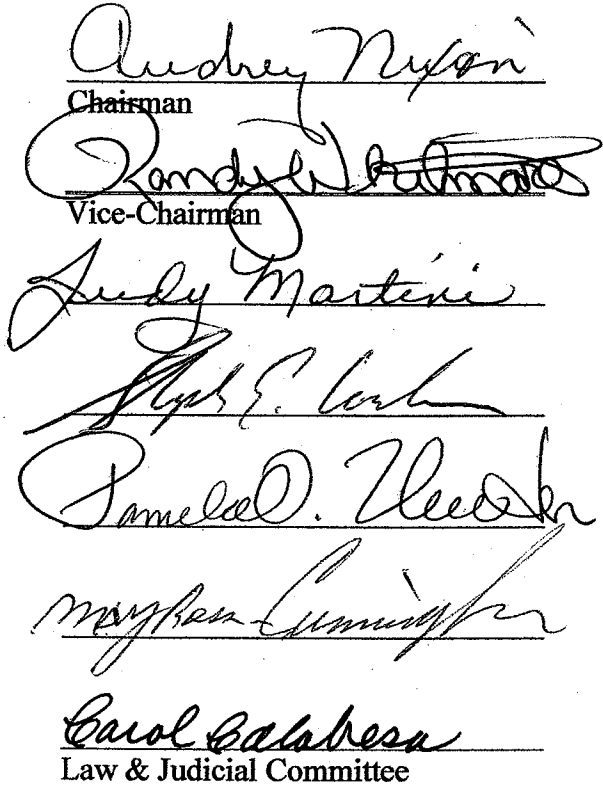 Audrey Nixon
Chairman
Randy Whitmore
Vice-Chairman
Judy Martini
E.
Pamela O.
Cunningham
Carol Calabresa
Law & Judicial Committee